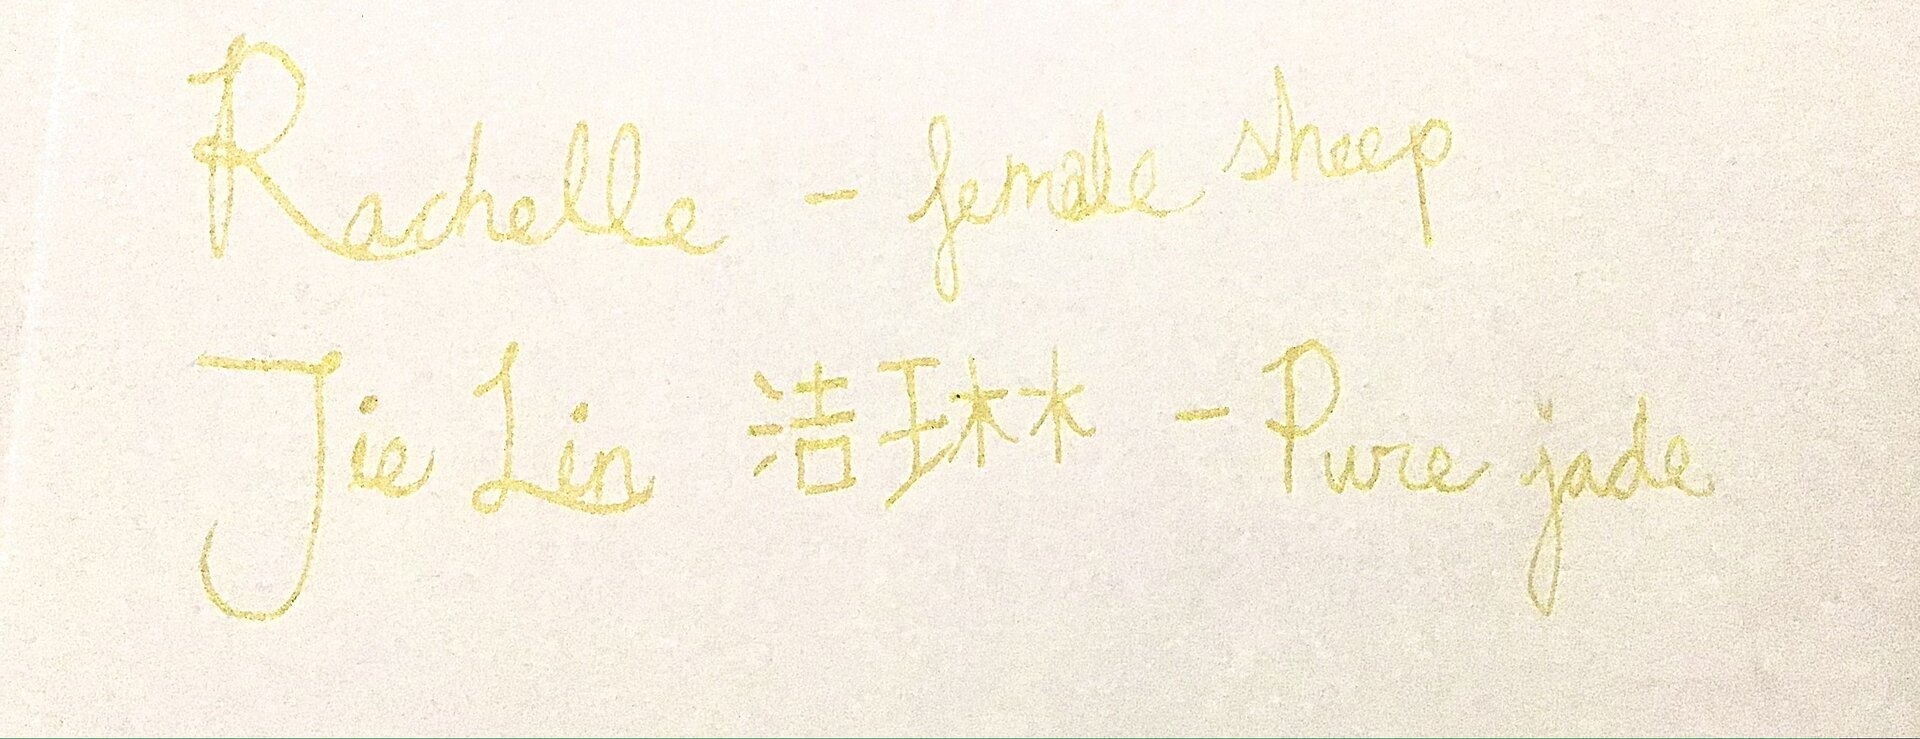 Rachelle - female sheep
Jie Lin 洁琳 - Pure jade